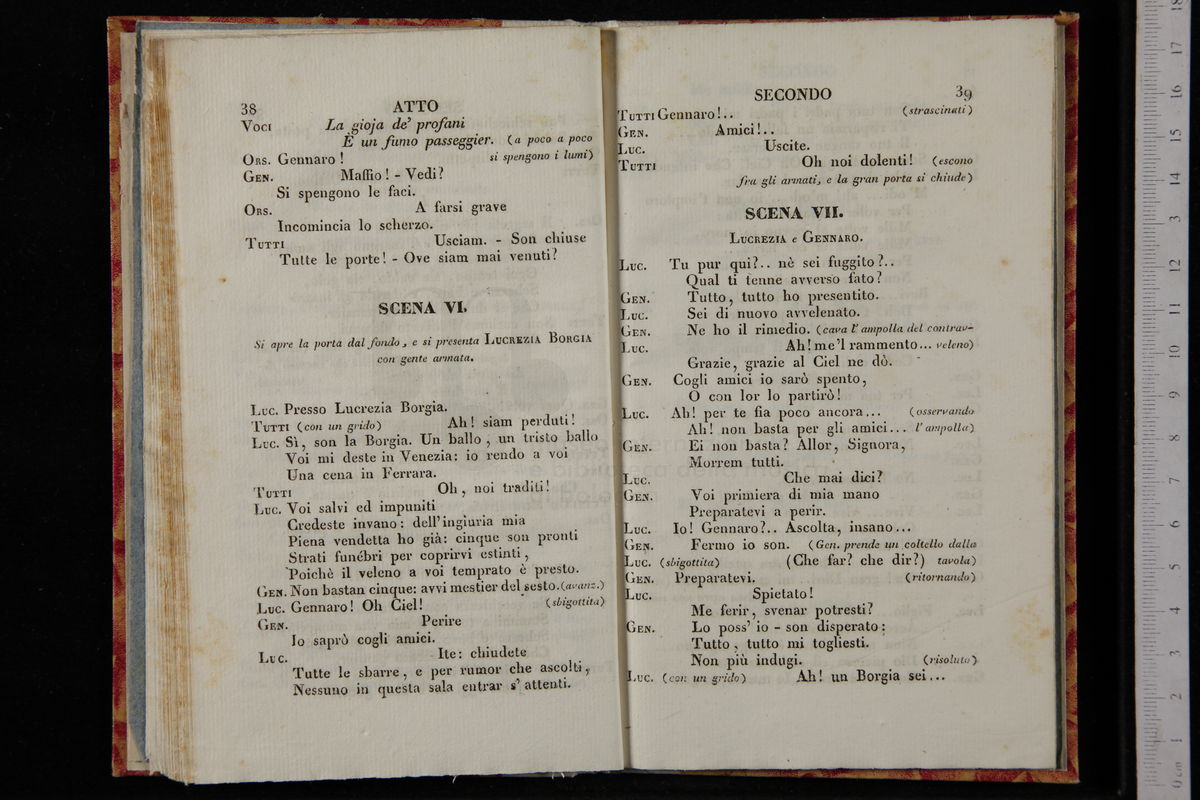 38 ATTO
Voci La gioja de' profani
È un fumo passeggier. (a poco a poco
Ors. Gennaro! si spengono i lumi)
Gen. Maffio! - Vedi?
Si spengono le faci.
Ors. A farsi grave
Incomincia lo scherzo.
Tutti Usciam. - Son chiuse
Tutte le porte! - Ove siam mai venuti?
SCENA VI.
Si apre la porta dal fondo, e si presenta Lucrezia Borgia
con gente armata.
Luc. Presso Lucrezia Borgia.
Tutti (con un grido) Ah! siam perduti!
Luc. Sì, son la Borgia. Un ballo, un tristo ballo
Voi mi deste in Venezia: io rendo a voi
Una cena in Ferrara.
Tutti Oh, noi traditi!
Luc. Voi salvi ed impuniti
Credeste invano: dell'ingiuria mia
Piena vendetta ho già: cinque son pronti
Strati funébri per coprirvi estinti,
Poichè il veleno a voi temprato è presto.
Gen. Non bastan cinque: avvi mestier del sesto. (avanz.)
Luc. Gennaro! Oh Ciel! (sbigottita)
Gen. Perire
Io saprò cogli amici.
Luc. Ite: chiudete
Tutte le sbarre, e per rumor che ascolti,
Nessuno in questa sala entrar s'attenti.
SECONDO 39
Tutti Gennaro!.. (strascinati)
Gen. Amici!..
Luc. Uscite.
Tutti Oh noi dolenti! (escono
fra gli armati, e la gran porta si chiude)
SCENA VII.
Lucrezia e Gennaro.
Luc. Tu pur qui?.. nè sei fuggito?..
Qual ti tenne avverso fato?
Gen. Tutto, tutto ho presentito.
Luc. Sei di nuovo avvelenato.
Gen. Ne ho il rimedio. (cava l'ampolla del contrav-
Luc. Ah! me'l rammento... veleno)
Grazie, grazie al Ciel ne dò.
Gen. Cogli amici io sarò spento,
O con lor lo partirò!
Luc. Ah! per te fia poco ancora... (osservando
Ah! non basta per gli amici... l'ampolla)
Gen. Ei non basta? Allor, Signora,
Morrem tutti.
Luc. Che mai dici?
Gen. Voi primiera di mia mano
Preparatevi a perir.
Luc. Io! Gennaro?.. Ascolta, insano...
Gen. Fermo io son. (Gen. prende un coltello dalla
Luc. (sbigottita) (Che far? che dir?) tavola)
Gen. Preparatevi. (ritornando)
Luc. Spietato!
Me ferir, svenar potresti?
Gen. Lo poss' io - son disperato:
Tutto, tutto mi togliesti.
Non più indugi. (risoluto)
Luc. (con un grido) Ah! un Borgia sei...